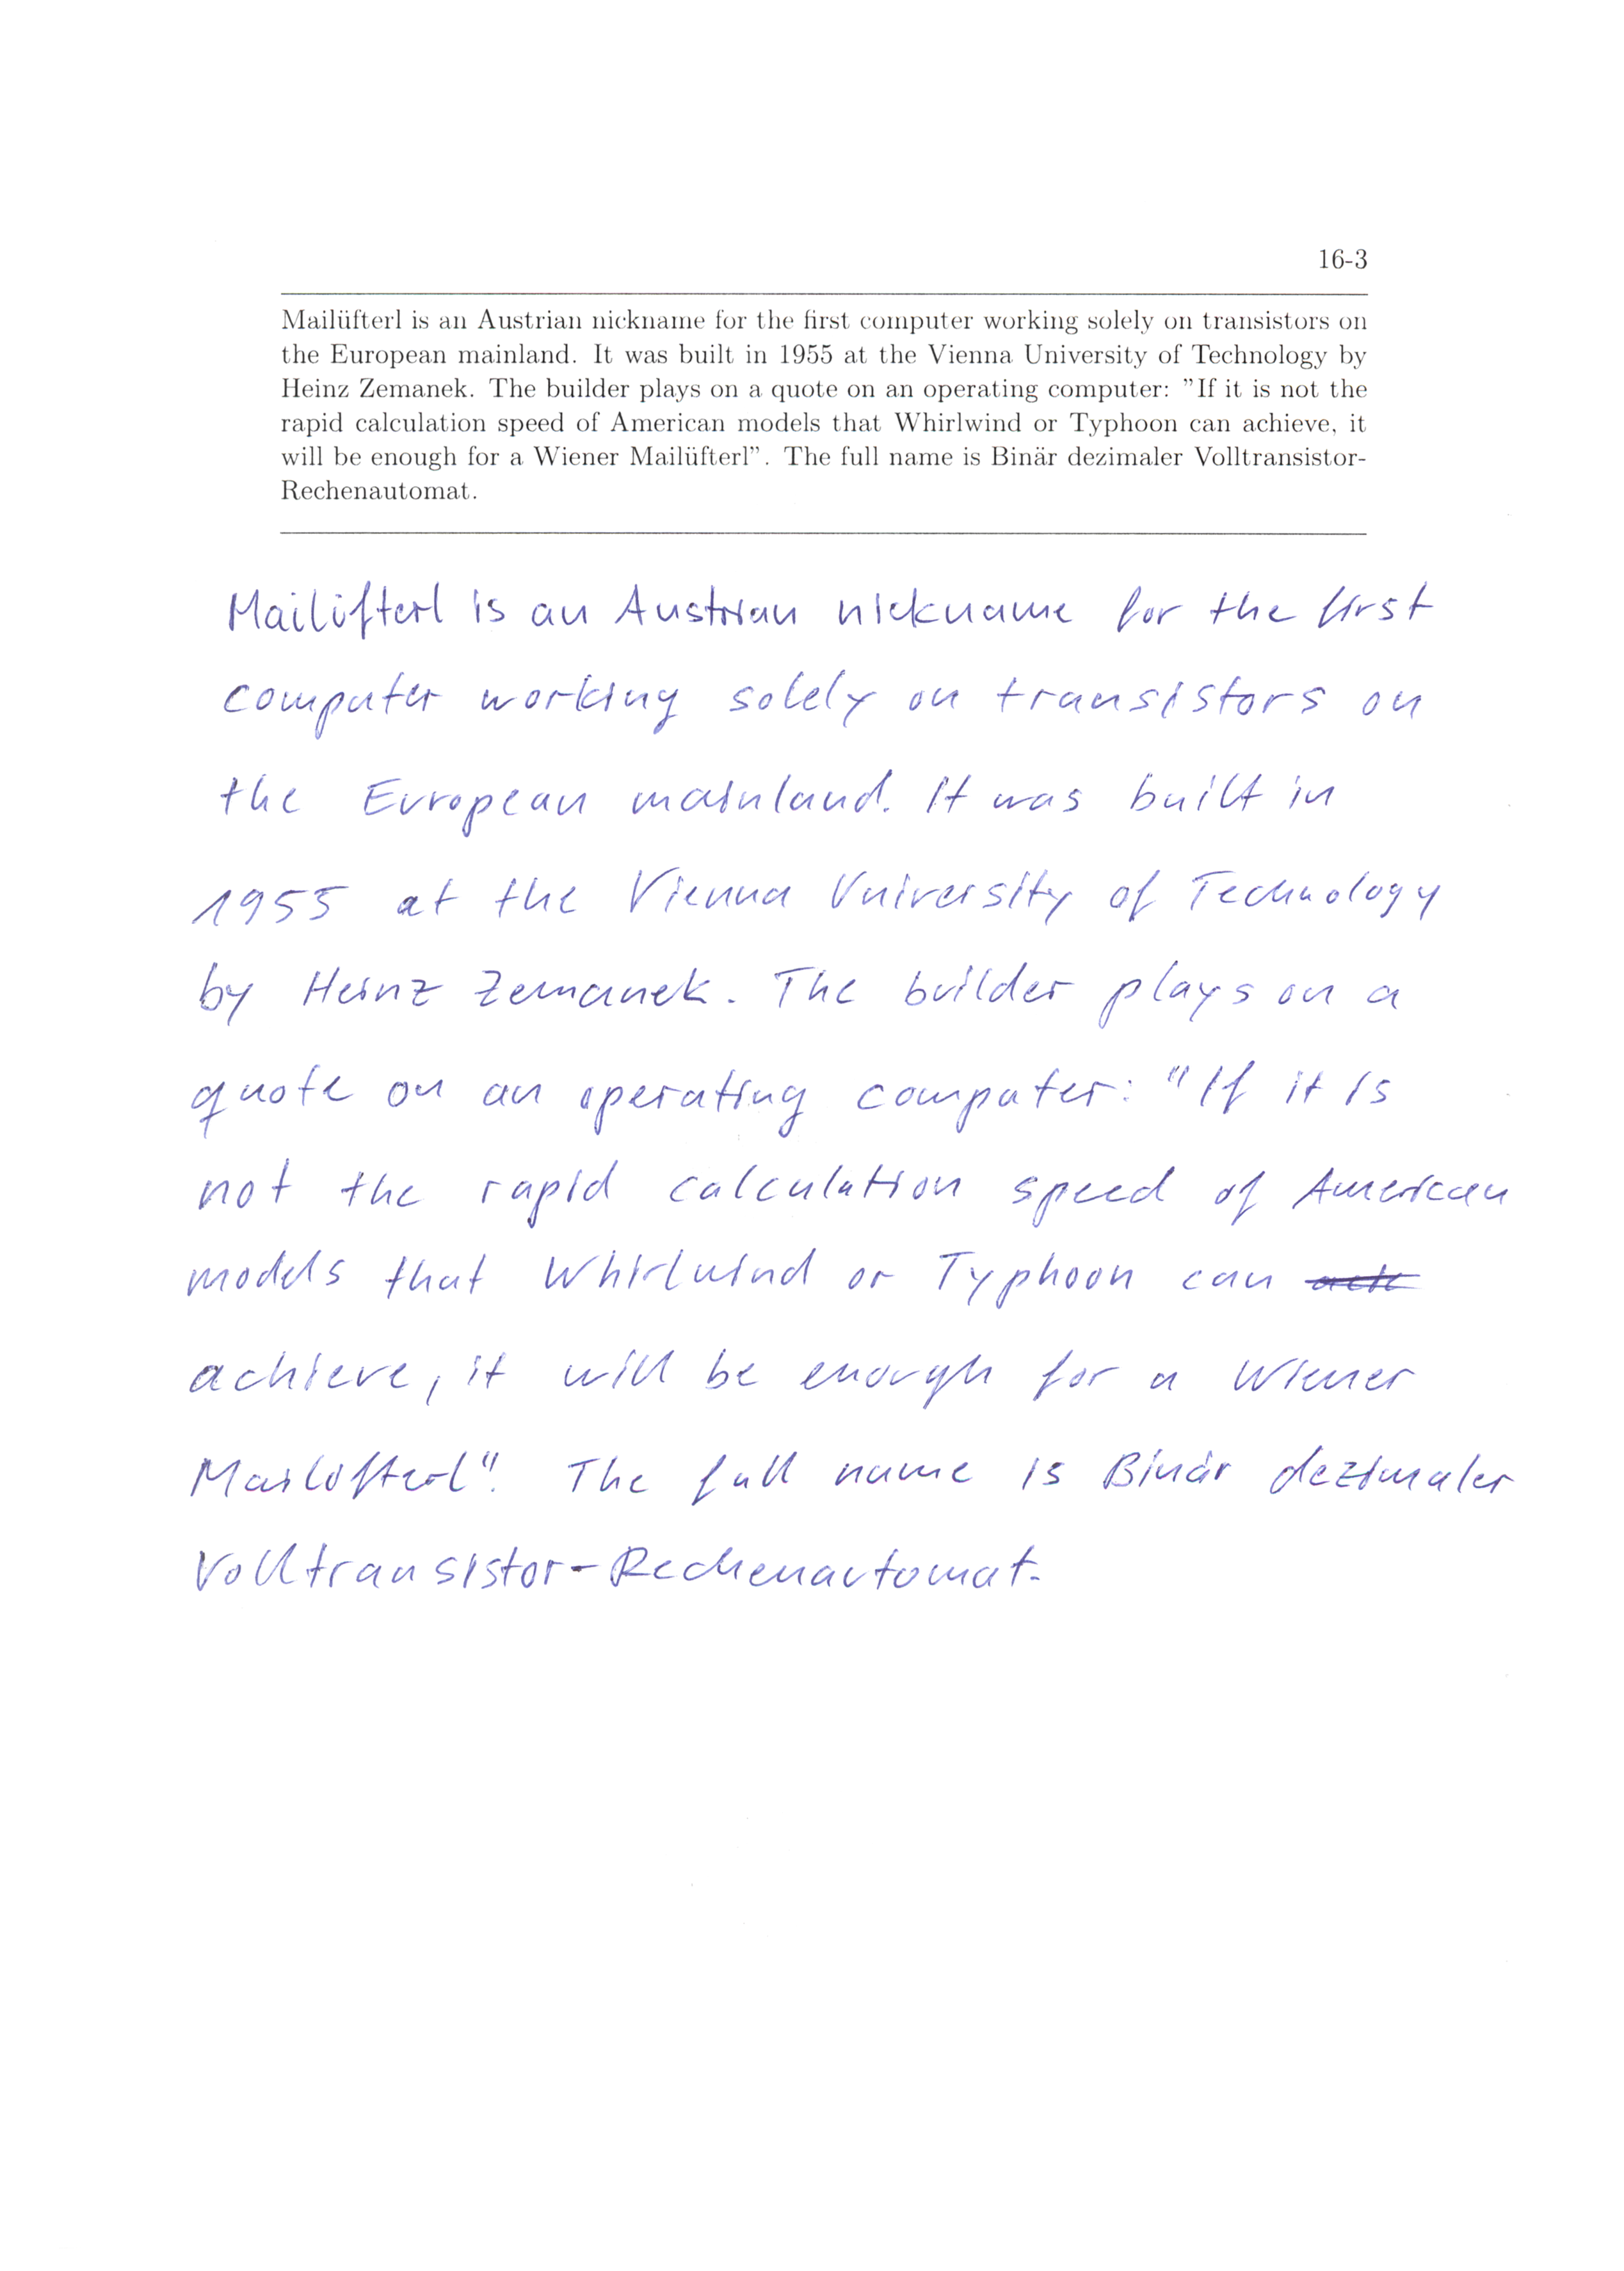 16-3
Mailüfterl is an Austrian nickname for the first computer working solely on transistors on
the European mainland. It was built in 1955 at the Vienna University of Technology by
Heinz Zemanek. The builder plays on a quote on an operating computer: "If it is not the
rapid calculation speed of American models that Whirlwind or Typhoon can achieve, it
will be enough for a Wiener Mailüfterl". The full name is Binär dezimaler Volltransistor-
Rechenautomat.
Mailüfterl is an Austrian nickname for the first
computer working solely on transistors on
the European mainland. It was built in
1955 at the Vienna University of Technology
by Heinz Zemanek. The builder plays on a
quote on an operating computer: "If it is
not the rapid calculation speed of American
models that Whirlwind or Typhoon can
achieve, it will be enough for a Wiener
Mailüfterl". The full name is Binär dezimaler
Volltransistor-Rechenautomat.